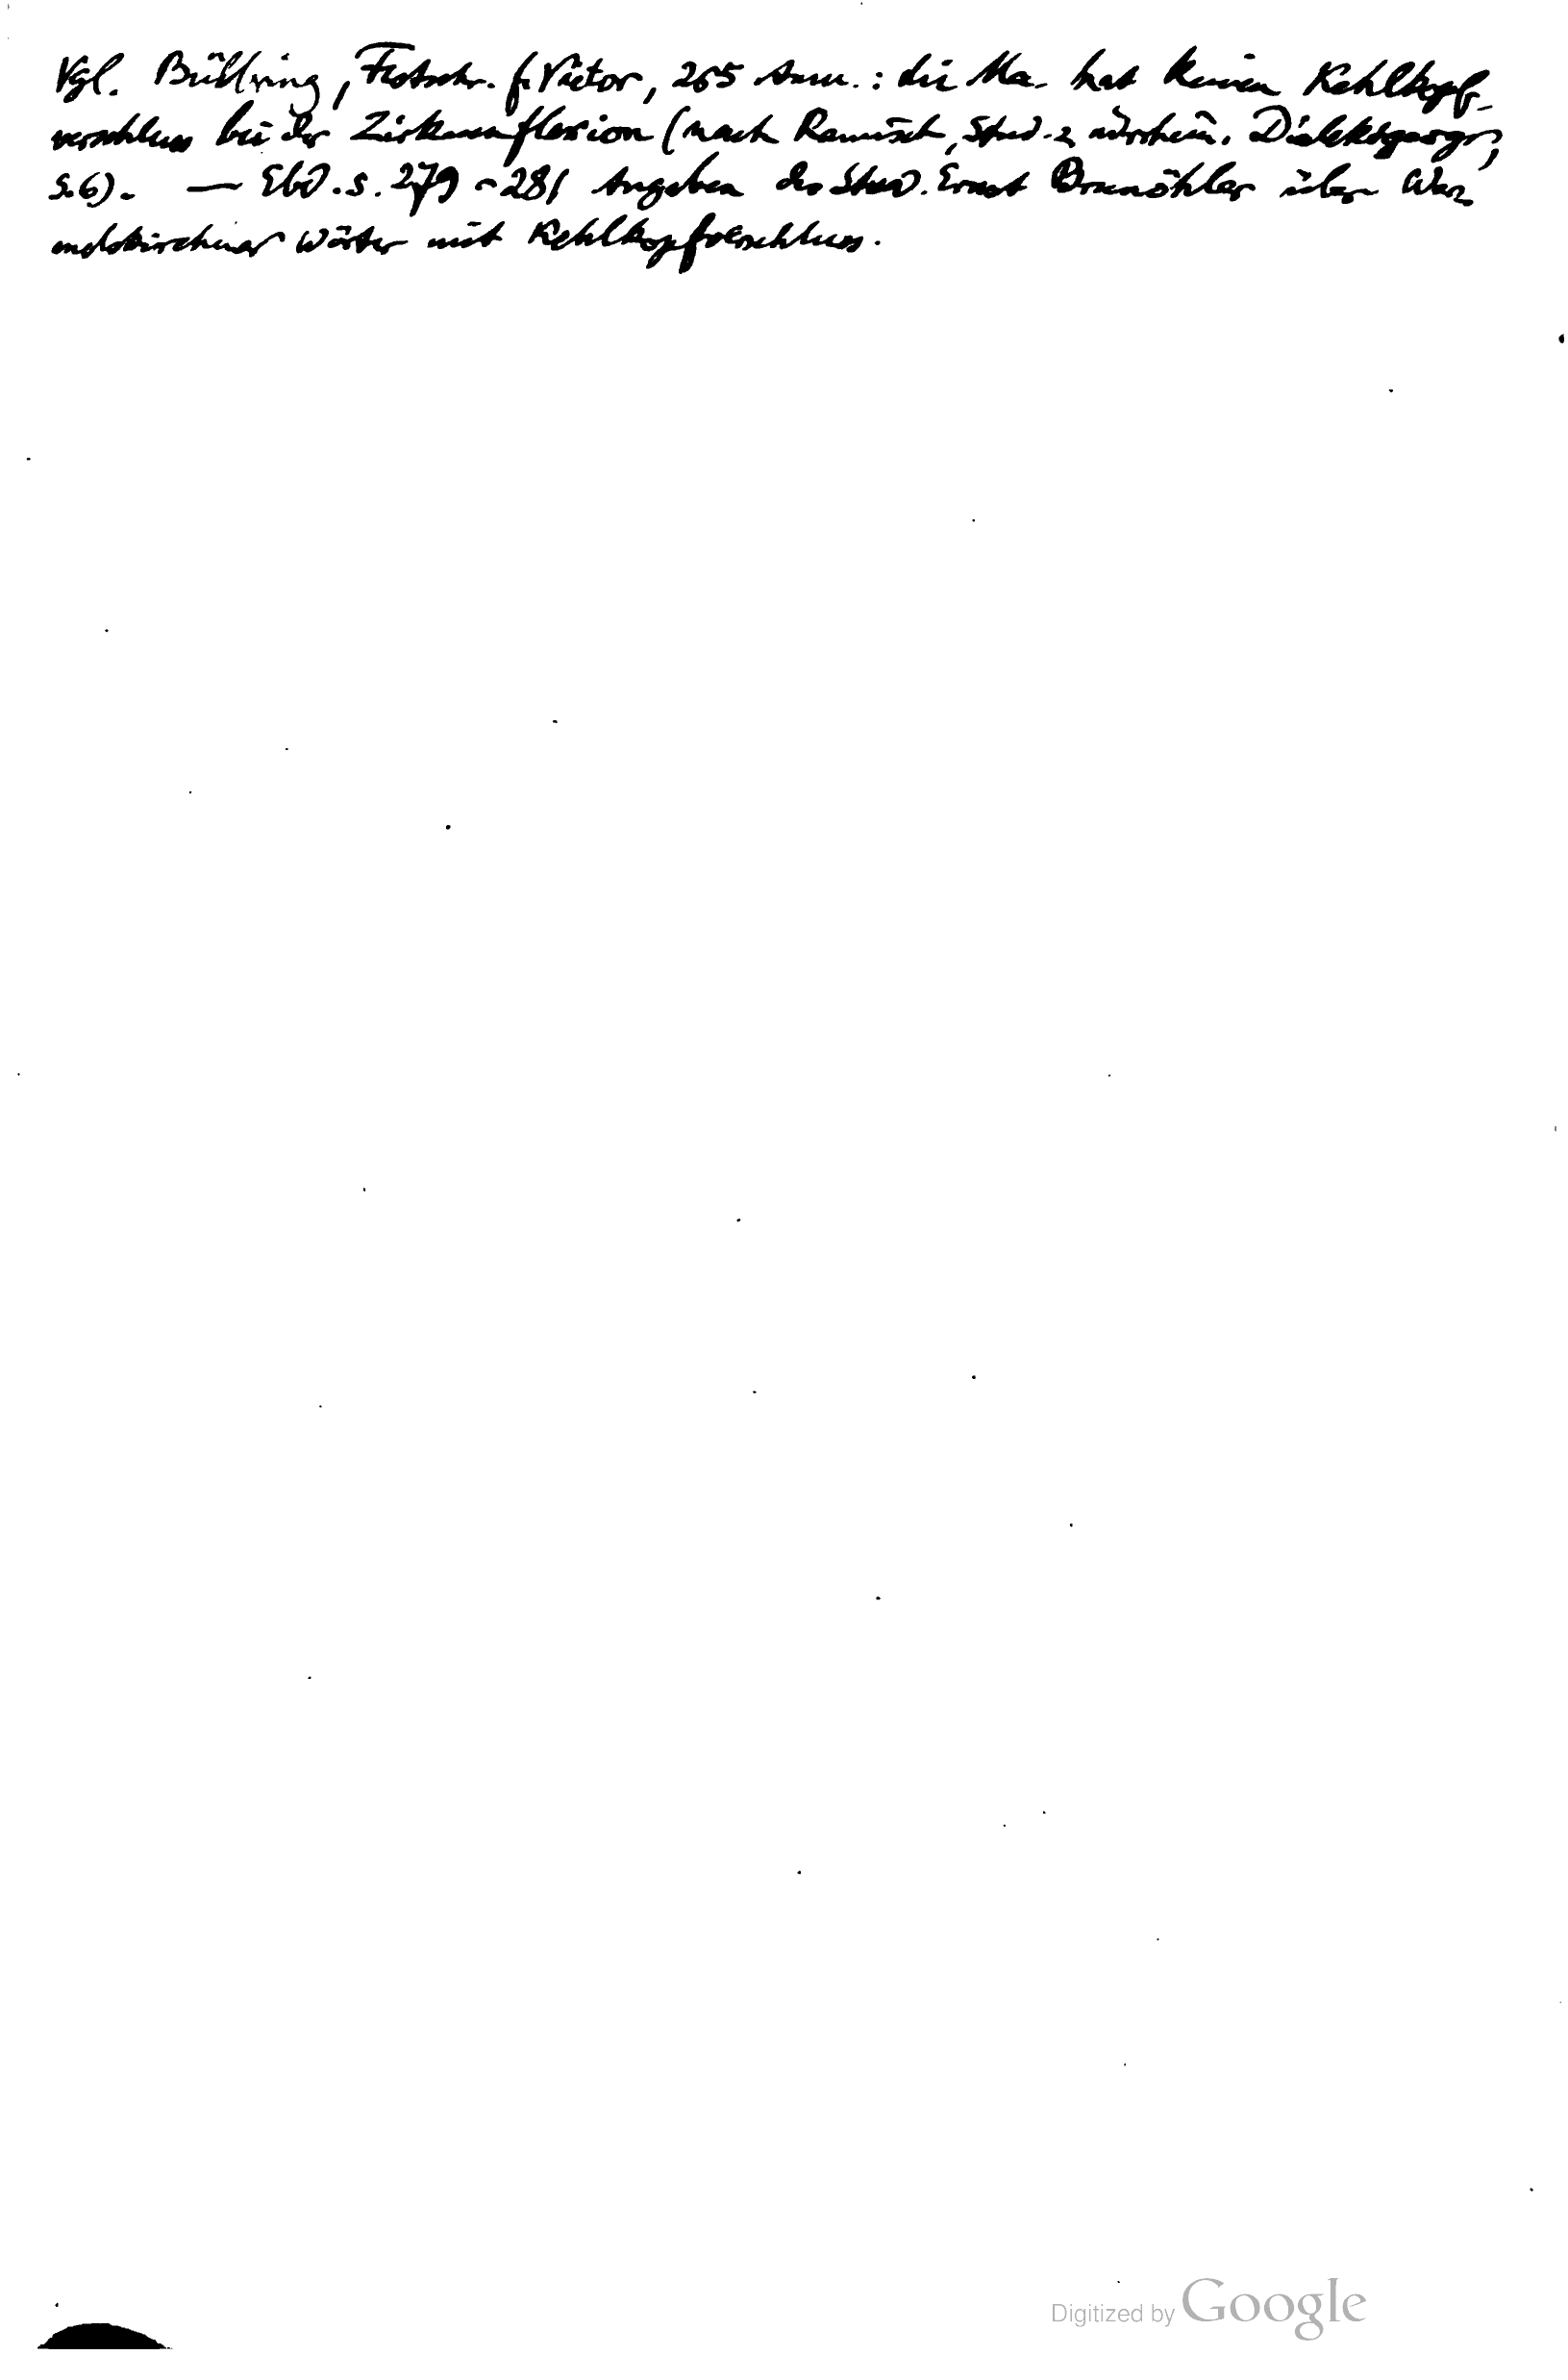 Vgl. Bülbring, Festschr. f. Viëtor, 265 Anm.: die Ma. hat keinen Kehlkopf-
verschluss bei der Zirkumflexion (nach Ramisch, Stud. z. ndrrhein. Dialektgeogr.,
S. 6). — Ebd. S. 279-281 Angaben des Stud. Ernst über Wer-
melskirchner Wörter mit Kehlkopfverschluss.
Digitized by Google